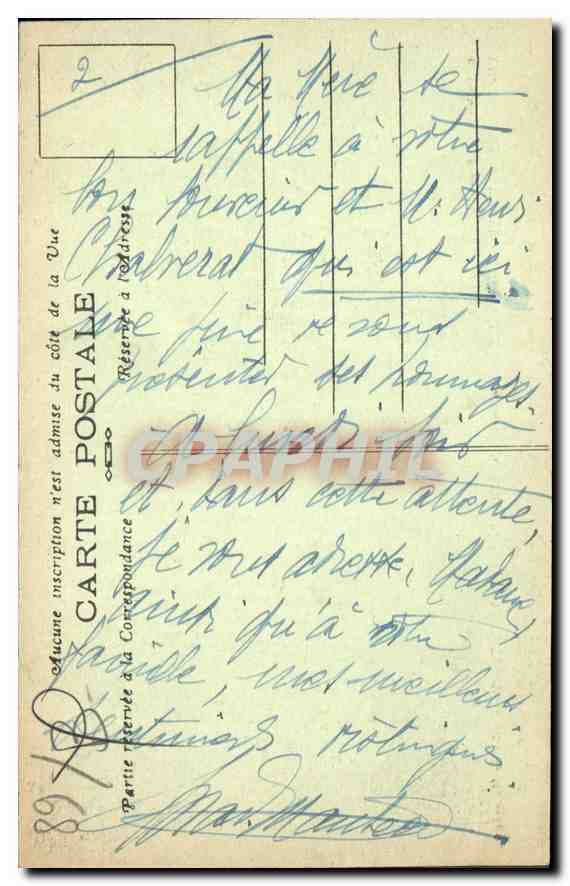 2
Ma Mère se
rappelle à votre
bon souvenir et M. Henri
Chalverat qui est ici
me prie de vous
présenter ses hommages.
A lundi soir
et, dans cette attente,
je vous adresse, Madame,
ainsi qu'à votre
famille, mes meilleurs
Aucune inscription n'est admise du côté de la Vue
CARTE POSTALE
Réservée à l'Adresse
Partie réservée à la Correspondance
CPAPHIL